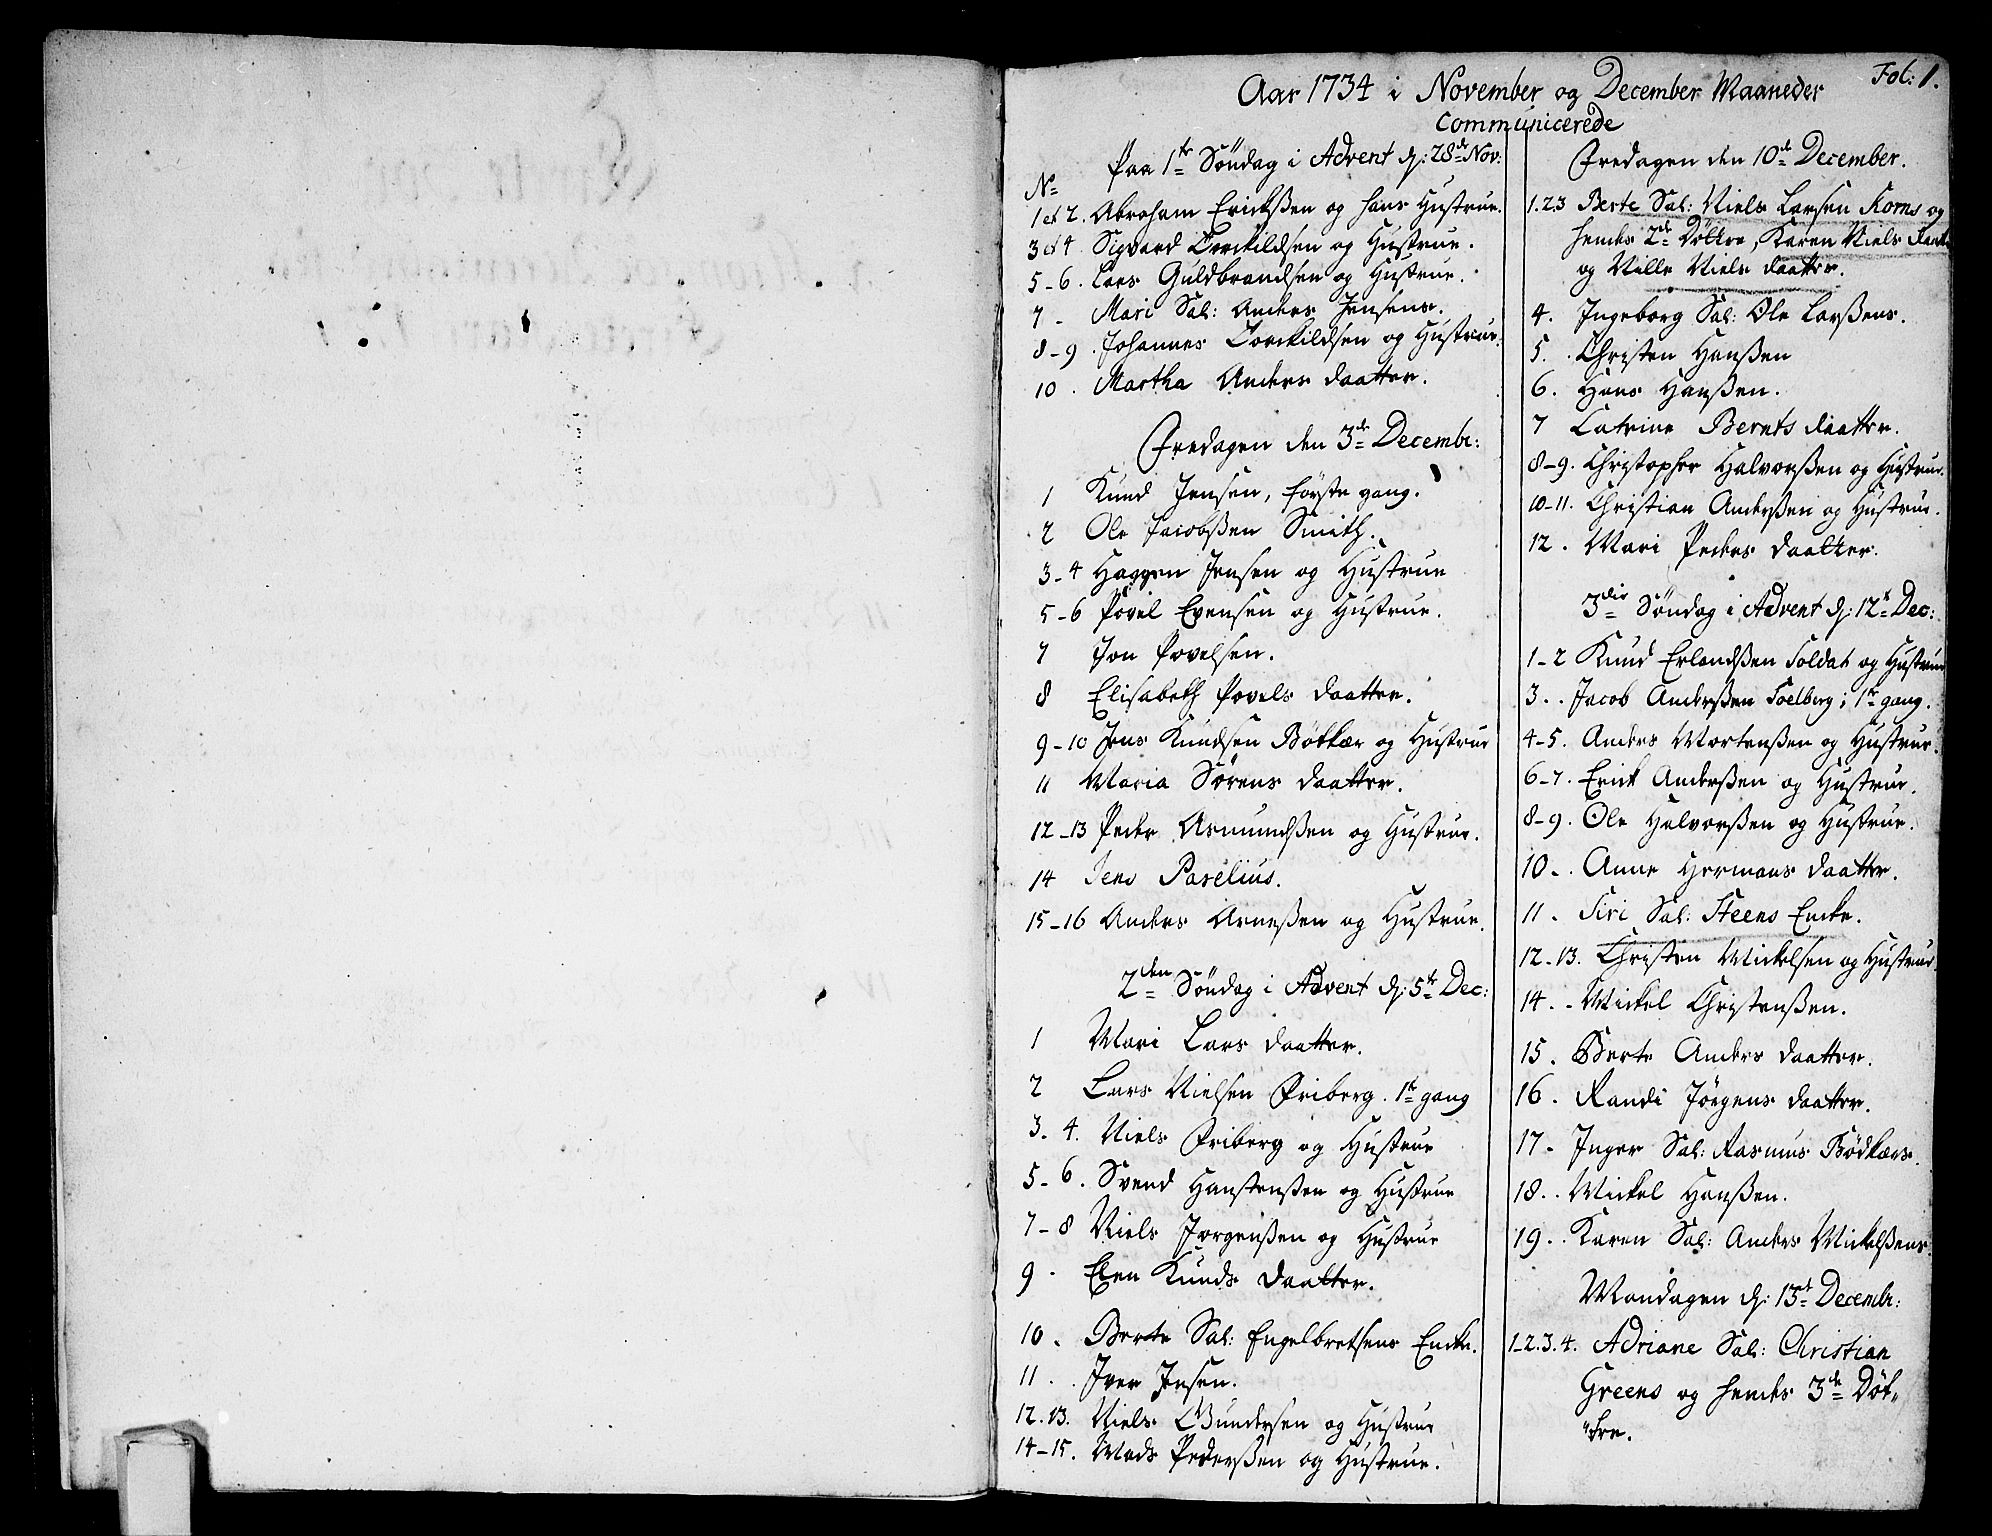 Fol: 1.
Aar 1734 i November og December Maaneder
Communicerede
Paa 1te Söndag i Advent d: 28de Nov:
No
1 et 2. Abraham Erichßen og hans Hustrue.
3 et 4 Sigvard Torckildsen og Hustrue.
5-6. Lars Guldbrandsen og Hustrue.
7 - Mari Sal: Anders Jensens.
8-9. Johannes Torckildsen og Hustrue.
10. Martha Anders daatter.
Fredagen den 3de Decembr:
1 Knud Jensen, første gang.
2 Ole Jacobßen Smith.
3-4 Haagen Jensen og Hustrue
5-6 Povel Evensen og Hustrue.
7 Jon Povelsen.
8 Elisabeth Povels daatter.
9-10 Jens Knudsen Bödker og Hustrue
11 Maria Sörens daatter.
12-13 Peder Asmundßen og Hustrue.
14 Jens Parelius.
15-16 Anders Arneßen og Hustrue.
2den Söndag i Advent d: 5te Dec:
1 Mari Lars daatter.
2 Lars Nielsen Friberg. 1te gang
3. 4. Niels Friberg og Hustrue
5-6. Svend Hanstenßen og Hustrue
7-8 Niels Jorgenßen og Hustrue
9. Elen Knuds daatter.
10. Berte Sal: Engelbretsens Encke.
11. . Iver Jensen.
12.13. Niels Gundersen og Hustrue
14-15. Mads Pederßen og Hustrue.
Fredagen den 10de December.
1.2.3 Berte Sal: Niels Larsen Korns og
hendes 2de Döttre, Karen Niels daatter
og Nille Niels daatter.
4. Ingeborg Sal: Ole Larßens.
5. . Christen Hanßen
6. Hans Hanßen.
7 Catrine Bernts daatter.
8-9. Christopher Halvorßen og Hustrue.
10-11. Christian Anderßen og Hustrue.
12. Mari Peders daatter.
3die Söndag i Advent d: 12te Dec:
1-2 Knud Erlandßen Soldat og Hustrue
3. . Jacob Anderßen Soelberg; 1te gang.
4-5. Anders Mortenßen og Hustrue.
6-7. Erick Anderßen og Hustrue.
8-9. Ole Halvorßen og Hustrue.
10. . Anne Hermans daatter.
11. Siri Sal: Steens Encke.
12-13. Christen Mickelsen og Hustrue.
14. - Mickel Christenßen.
15. Berte Anders daatter.
16. Randi Jörgens daatter.
17. Inger Sal: Rasmus Bödkers.
18. . Mickel Hanßen.
19. . Karen Sal: Anders Mickelßens.
Mandagen d: 13de Decembr:
1-2.3.4. Adriane Sal: Christian
Greens og hendes 3de Döt-
"tre.